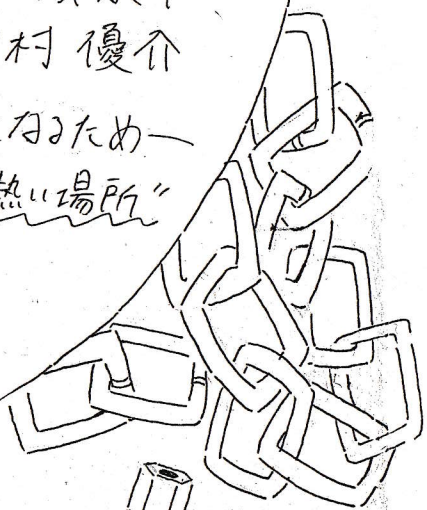 村 優介
なるため―
熱い場所”